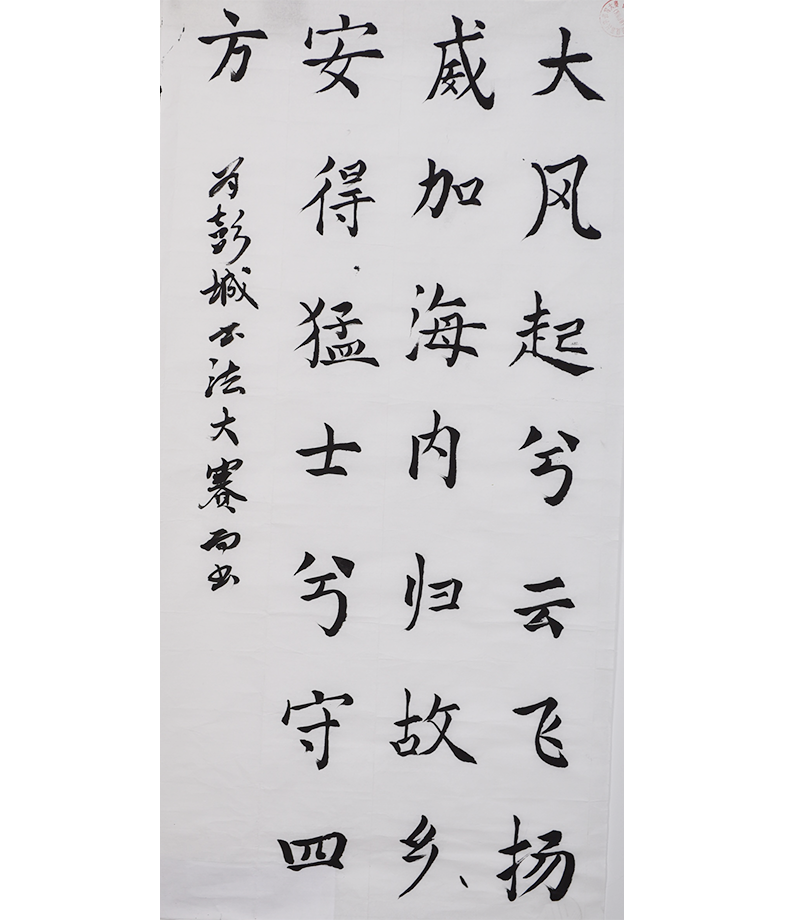 大风起兮云飞扬
威加海内归故乡、
安得猛士兮守四
方
为彭城书法大赛而书